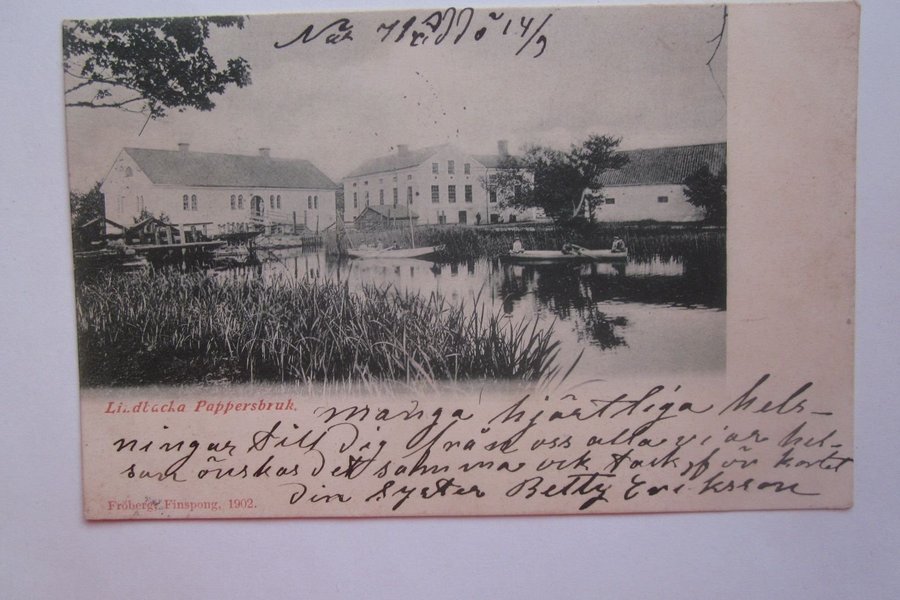 14/9
Lindtåcka Pappersbruk.
många hjärtliga hels-
ningar till Dig från oss alla vi ar hel-
sam önskas det samma ock tack för kortet
din Syster Betty Eriksson
Fröberg, Finspong, 1902.